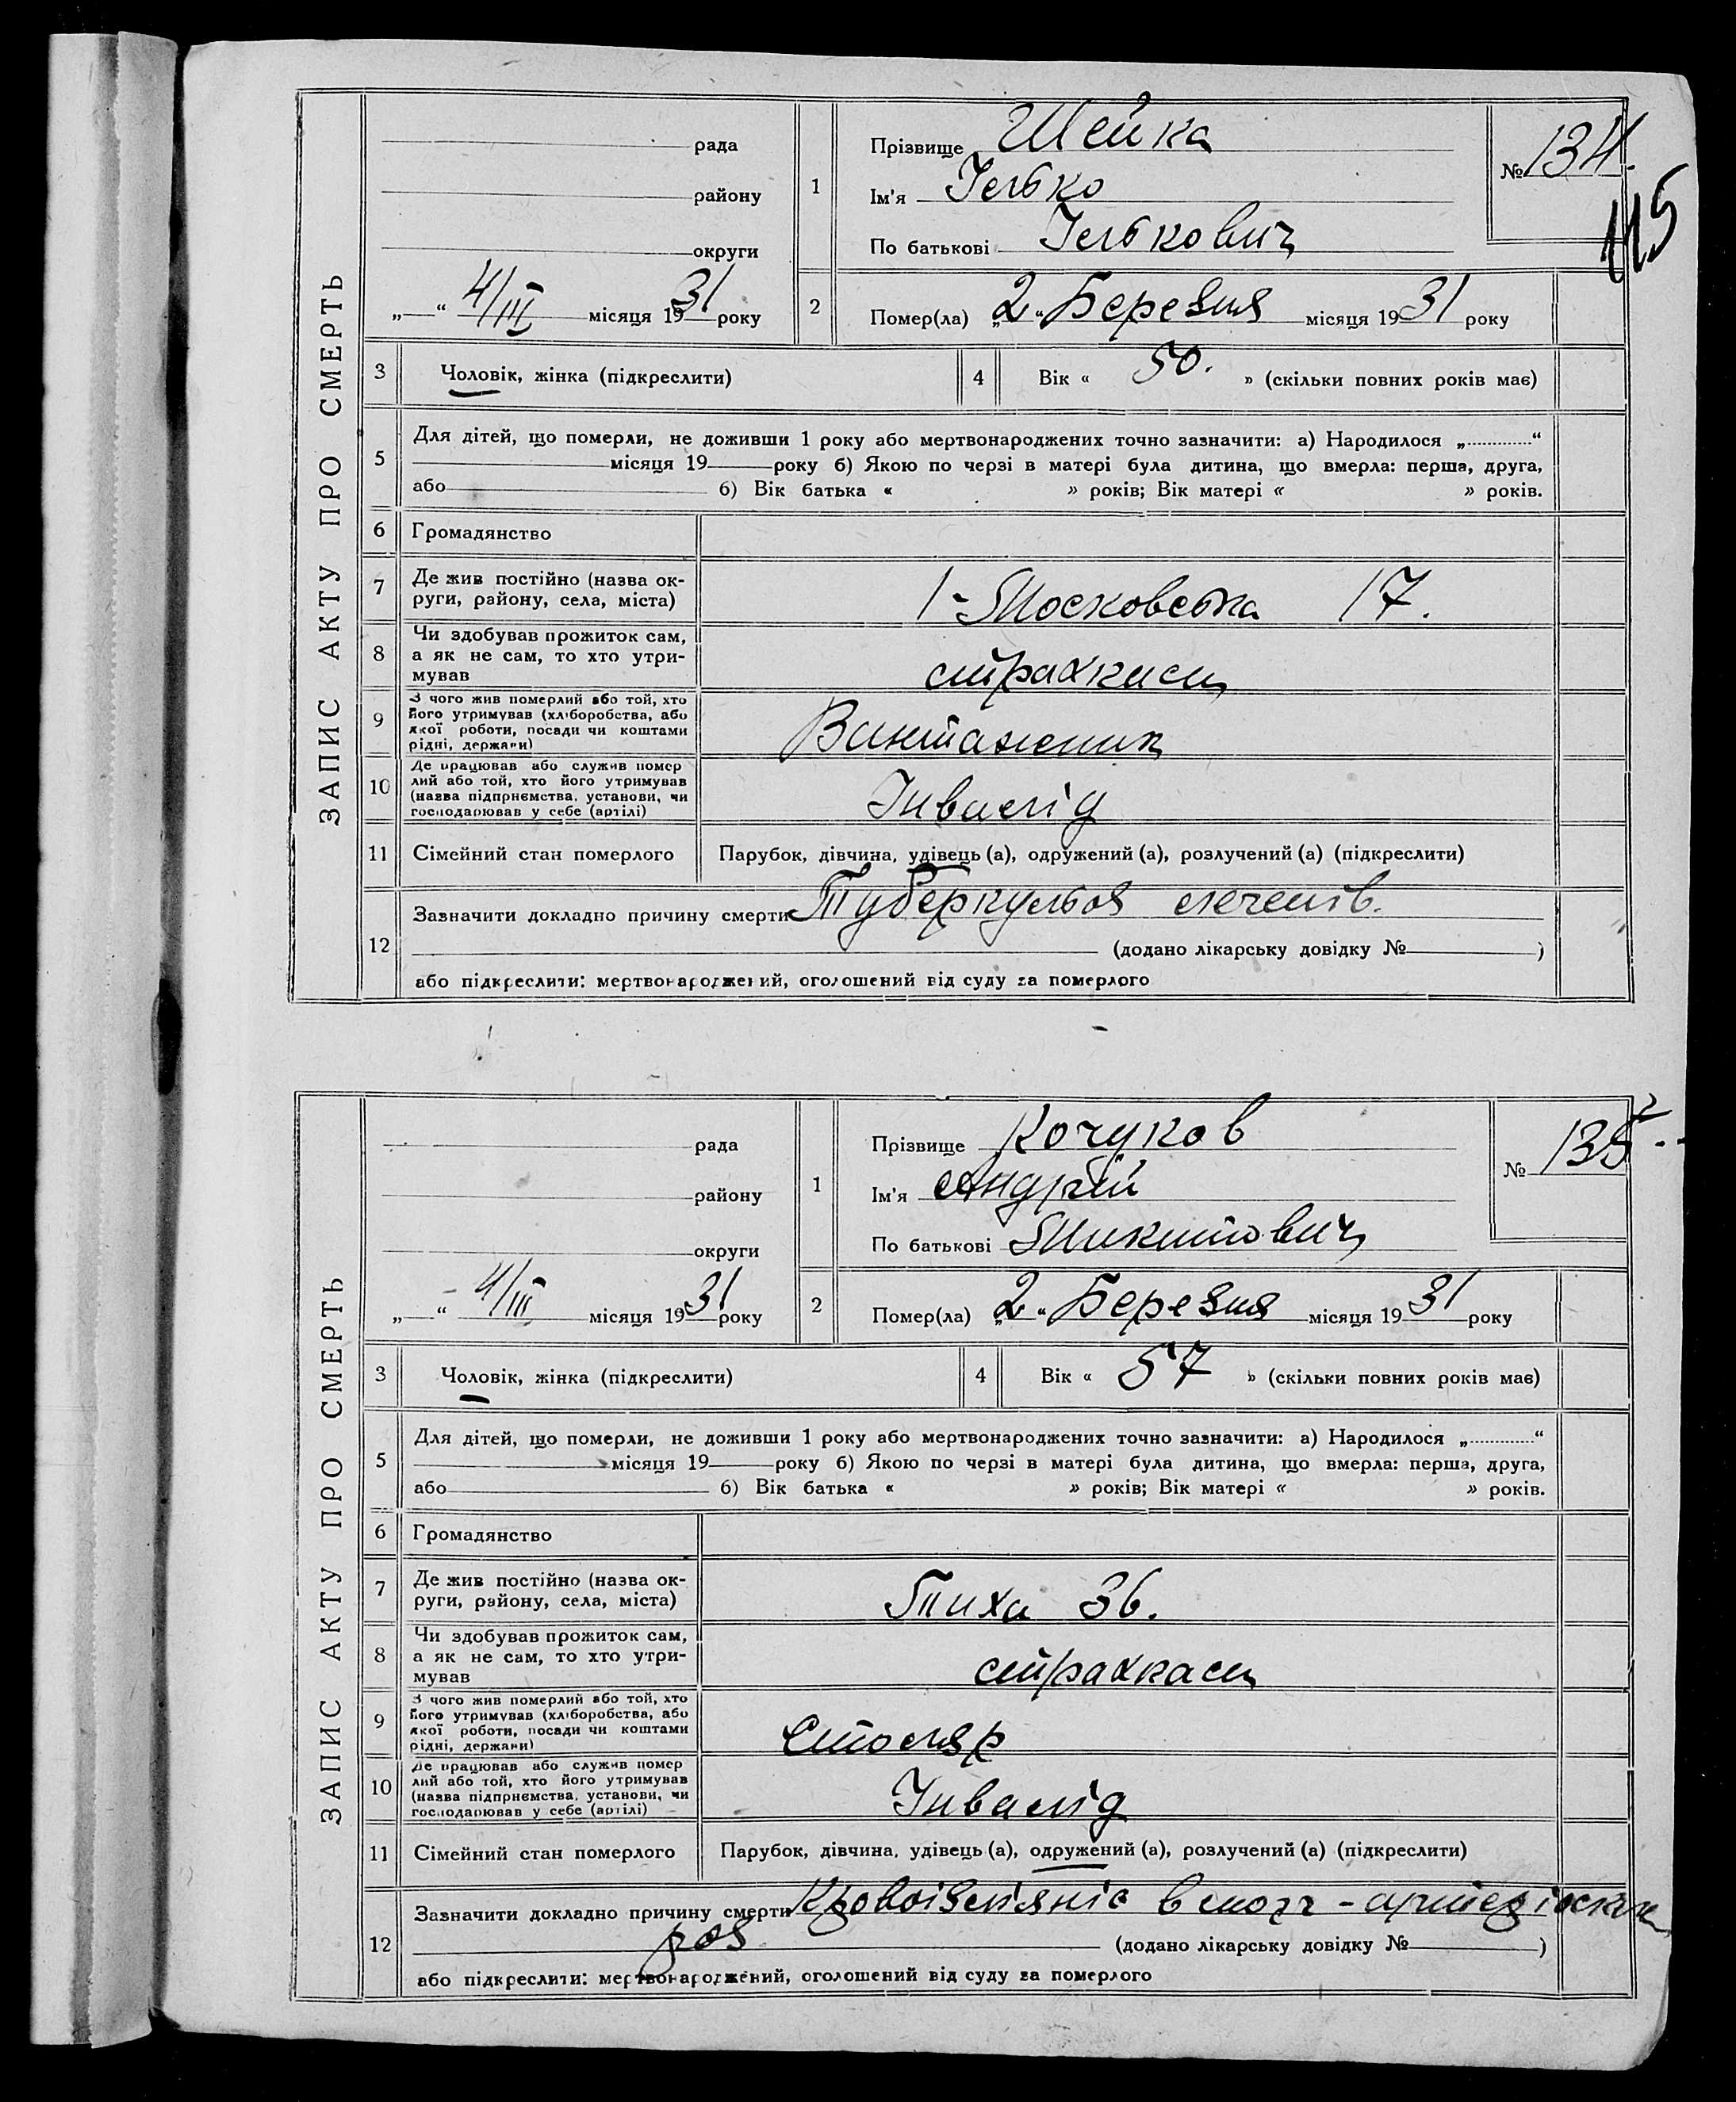 ЗАПИС АКТУ ПРО СМЕРТЬ
рада
району
округи
„ “ 4/III місяця 1931 року
1
Прізвище Шейка
Ім'я Ілько
По батькові Ількович
№ 134.
115
2
Помер(ла) „2“ Березня місяця 1931 року
3
Чоловік, жінка (підкреслити)
4
Вік « 50. » (скільки повних років має)
5
Для дітей, що померли, не доживши 1 року або мертвонароджених точно зазначити: а) Народилося „ “
місяця 19 року б) Якою по черзі в матері була дитина, що вмерла: перша, друга,
або б) Вік батька « » років; Вік матері « » років.
6
Громадянство
7
Де жив постійно (назва ок-
руги, району, села, міста)
1-Московська 17.
8
Чи здобував прожиток сам,
а як не сам, то хто утри-
мував
9
З чого жив померлий або той, хто
його утримував (хліборобства, або
якої роботи, посади чи коштами
рідні, держави)
Вантажник
10
Де працював або служив помер
лий або той, хто його утримував
(назва підприємства, установи, чи
господарював у себе (артілі)
Інвалід
11
Сімейний стан померлого
Парубок, дівчина, удівець (а), одружений (а), розлучений (а) (підкреслити)
12
Зазначити докладно причину смерти Туберкульоз легенів.
(додано лікарську довідку № )
або підкреслити: мертвонароджений, оголошений від суду за померлого
ЗАПИС АКТУ ПРО СМЕРТЬ
рада
району
округи
„ “ 4/III місяця 1931 року
1
Прізвище Кочуков
Ім'я Андрій
По батькові Микитович
№ 135
2
Помер(ла) „2“ Березня місяця 1931 року
3
Чоловік, жінка (підкреслити)
4
Вік « 57 » (скільки повних років має)
5
Для дітей, що померли, не доживши 1 року або мертвонароджених точно зазначити: а) Народилося „ “
місяця 19 року б) Якою по черзі в матері була дитина, що вмерла: перша, друга,
або б) Вік батька « » років; Вік матері « » років.
6
Громадянство
7
Де жив постійно (назва ок-
руги, району, села, міста)
Тиха 36.
8
Чи здобував прожиток сам,
а як не сам, то хто утри-
мував
страхкаси
9
З чого жив померлий або той, хто
його утримував (хліборобства, або
якої роботи, посади чи коштами
рідні, держави)
Столяр
10
Де працював або служив помер
лий або той, хто його утримував
(назва підприємства, установи, чи
господарював у себе (артілі)
Інвалід
11
Сімейний стан померлого
Парубок, дівчина, удівець (а), одружений (а), розлучений (а) (підкреслити)
12
Зазначити докладно причину смерти Кровоізліяніє в мозг - артеріоскле
роз
(додано лікарську довідку № )
або підкреслити: мертвонароджений, оголошений від суду за померлого